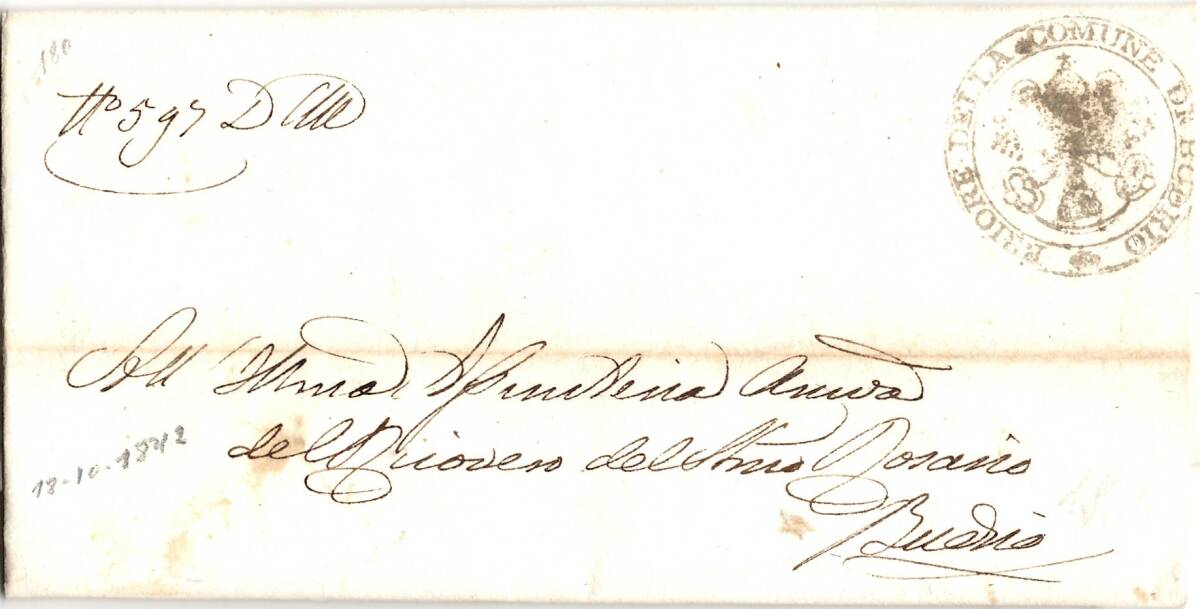 180
N° 597 D
PRIORE DELLA COMUNE DI BUDRIO
All' Illma
del Ricovero del Ssmo Rosario
18-10-1842
Budrio